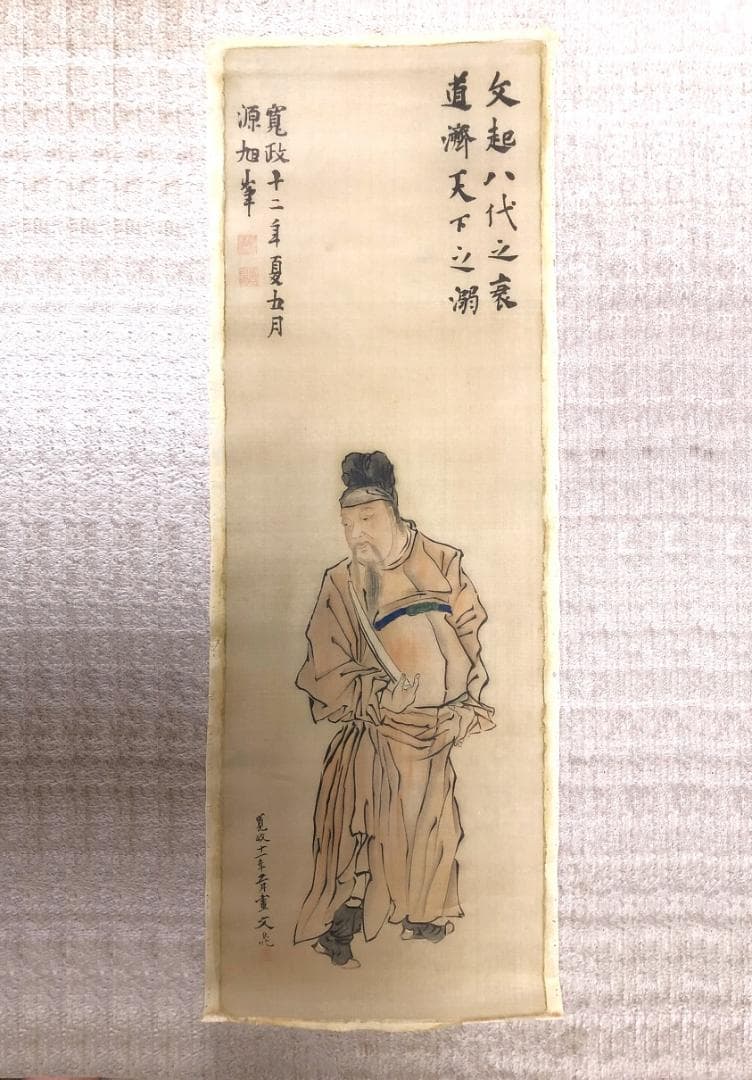 文起八代之衰
道濟天下之溺
寬政十二年夏五月
源旭峯
寛政十二年五月畫文晁